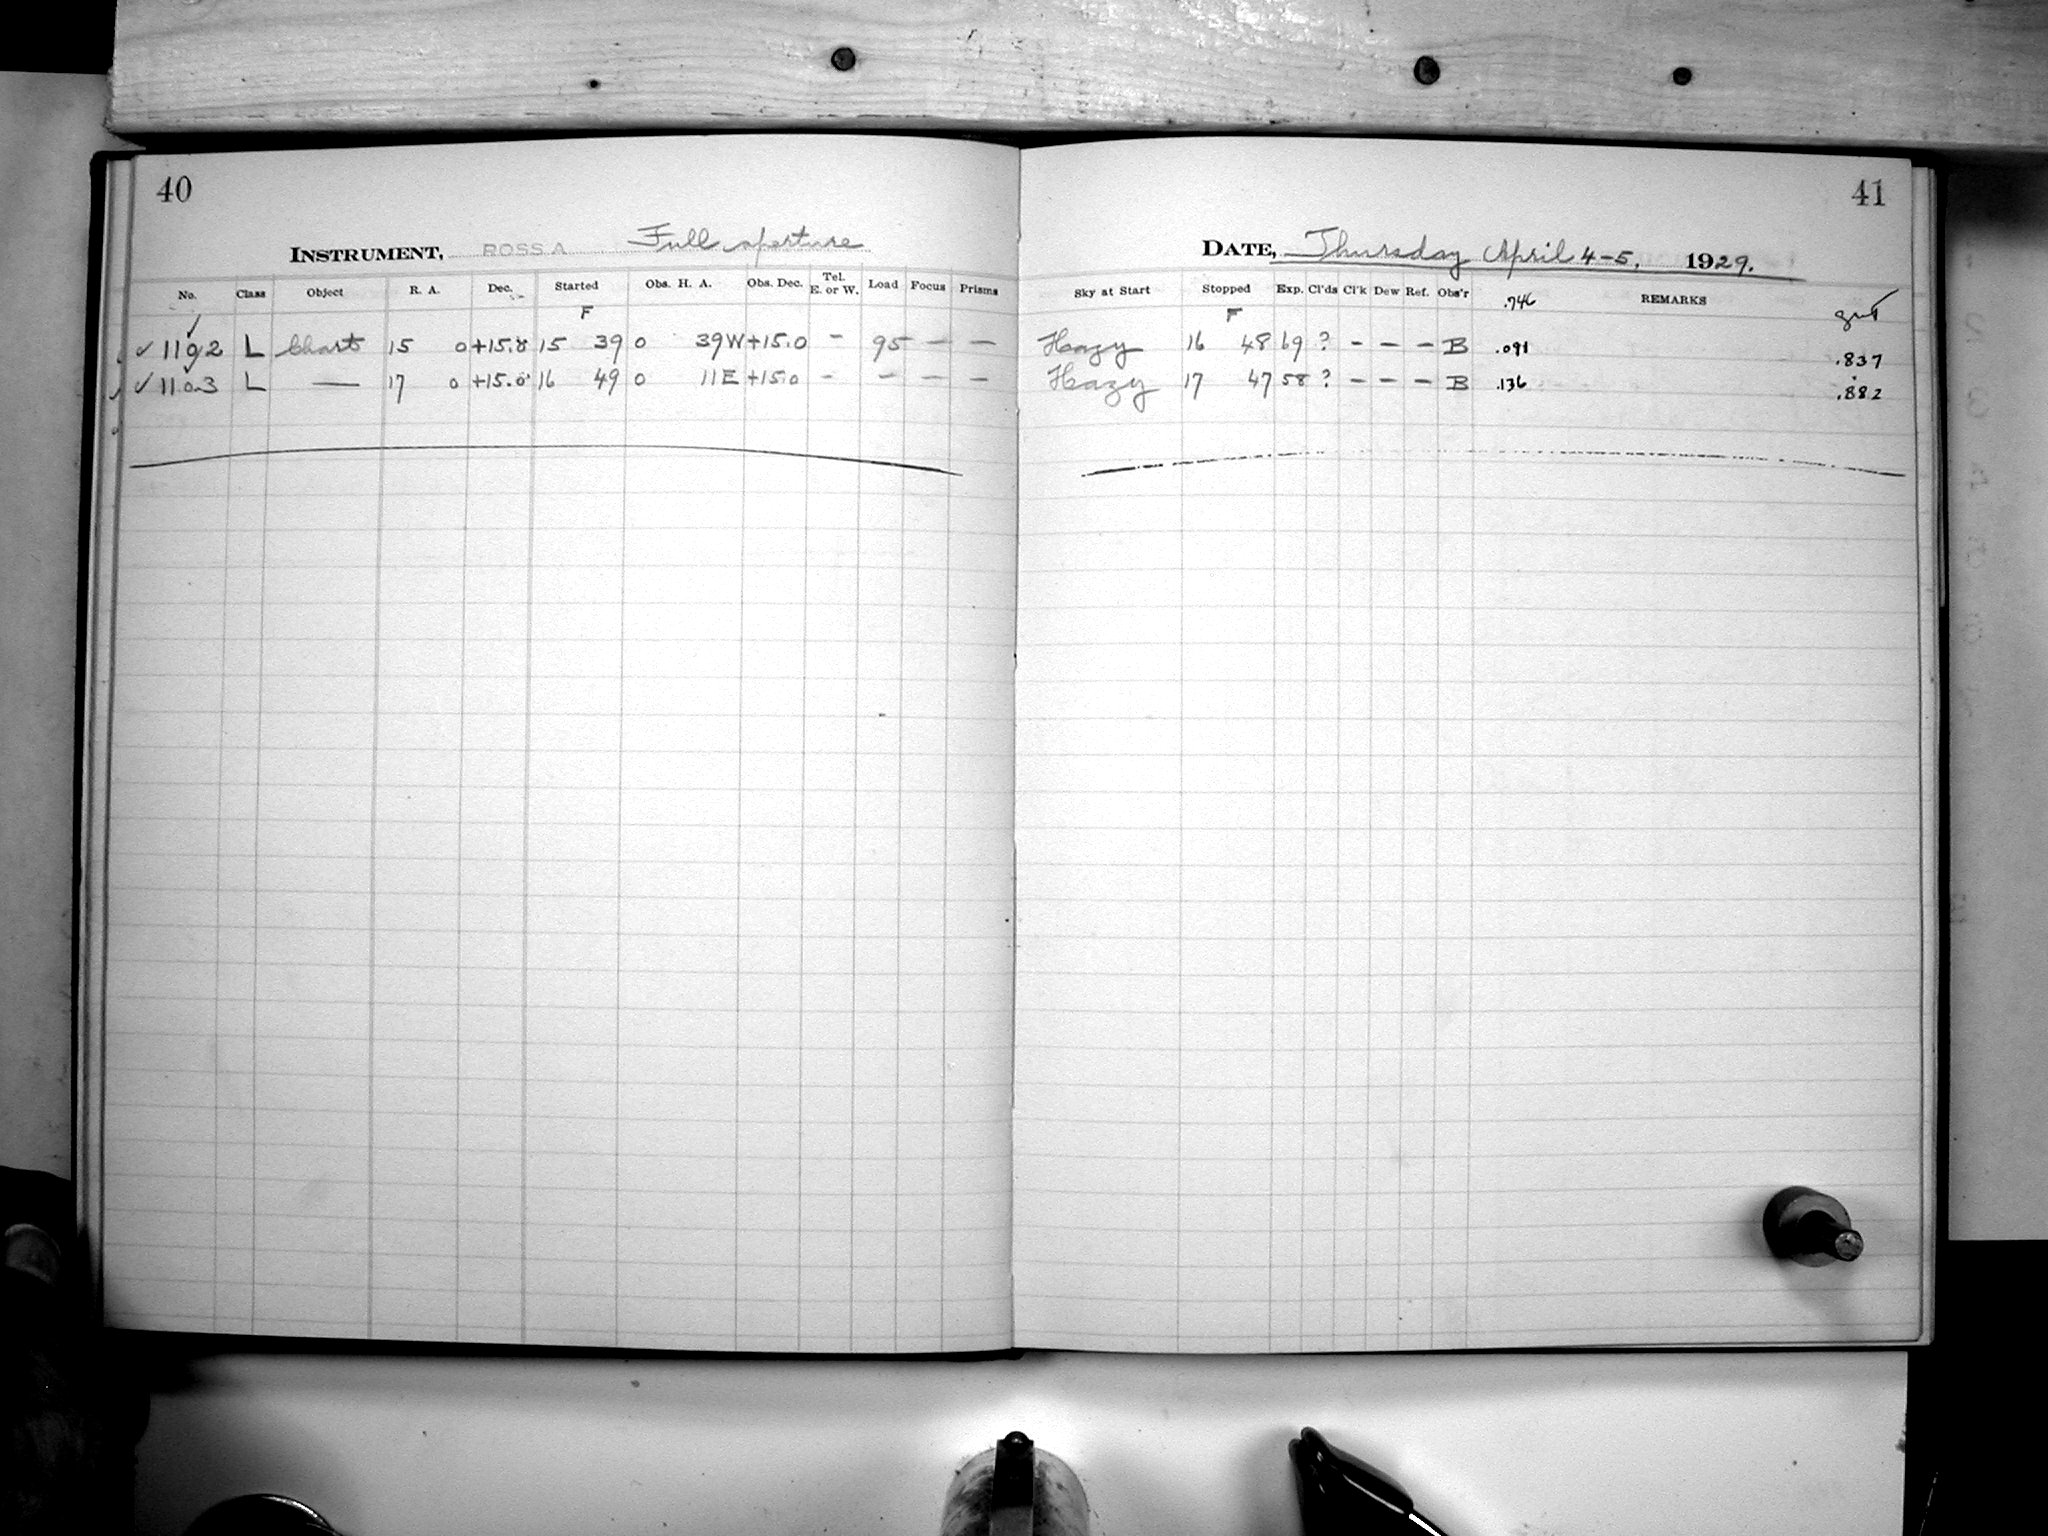 40
INSTRUMENT, ROSS A Full aperture
No. Class Object R. A. Dec. Started Obs. H. A. Obs. Dec. Tel. E. or W. Load Focus Prisms
F
✓ 1102 L Chart 15 0 +15.0 15 39 0 39W +15.0 - 95 - -
✓ 1103 L — 17 0 +15.0 16 49 0 11E +15.0 - - - -
41
DATE, Thursday April 4-5, 1929.
Sky at Start Stopped Exp. Cl'ds Cl'k Dew Ref. Obs'r .746 REMARKS
F
Hazy 16 48 69 ? - - - B .091 .837
Hazy 17 47 58 ? - - - B .136 .882